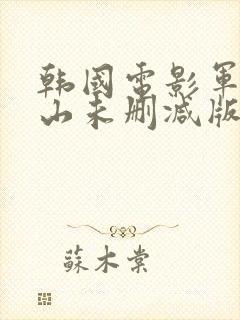 韩國電影軍
山未删减版
蘇木棠